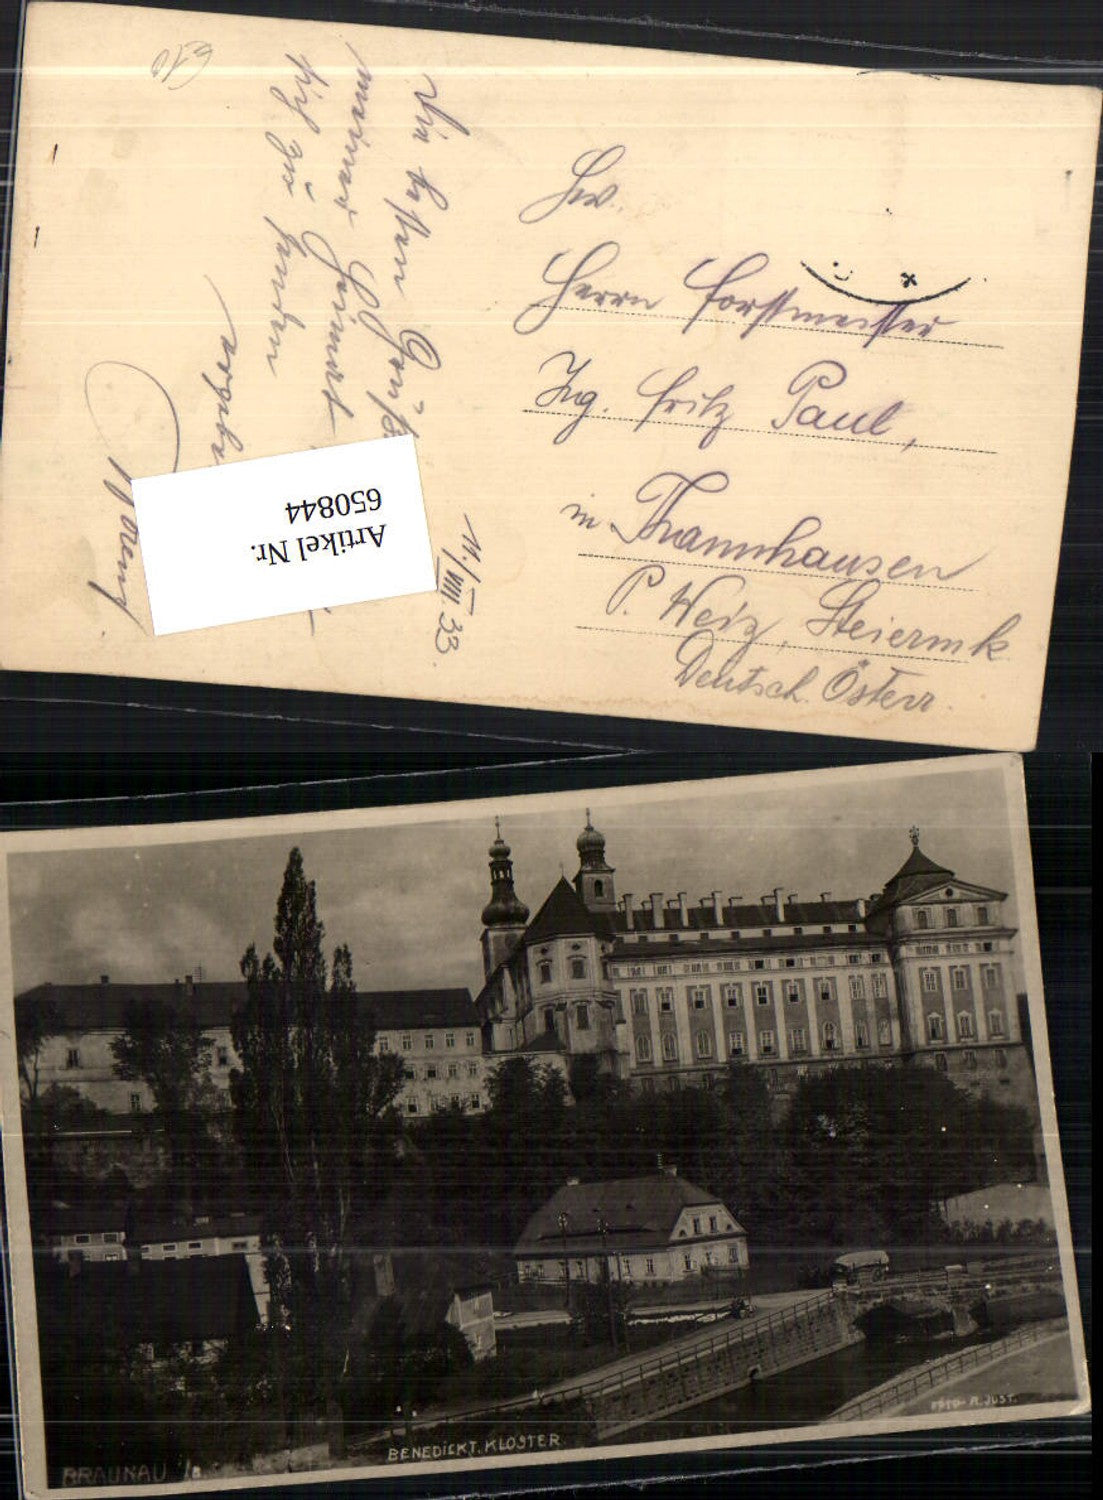 Die besten Grüße
meiner Heimat
zu senden
11./VIII 33.
Hw.
Herrn Forstmeister
Ing. Fritz Paul,
in Thannhausen
P. Weiz, Steiermk
Deutsch. Österr.
Artikel Nr.
650844
BENEDIKT. KLOSTER
BRAUNAU i/B
FOTO-R. JUST.